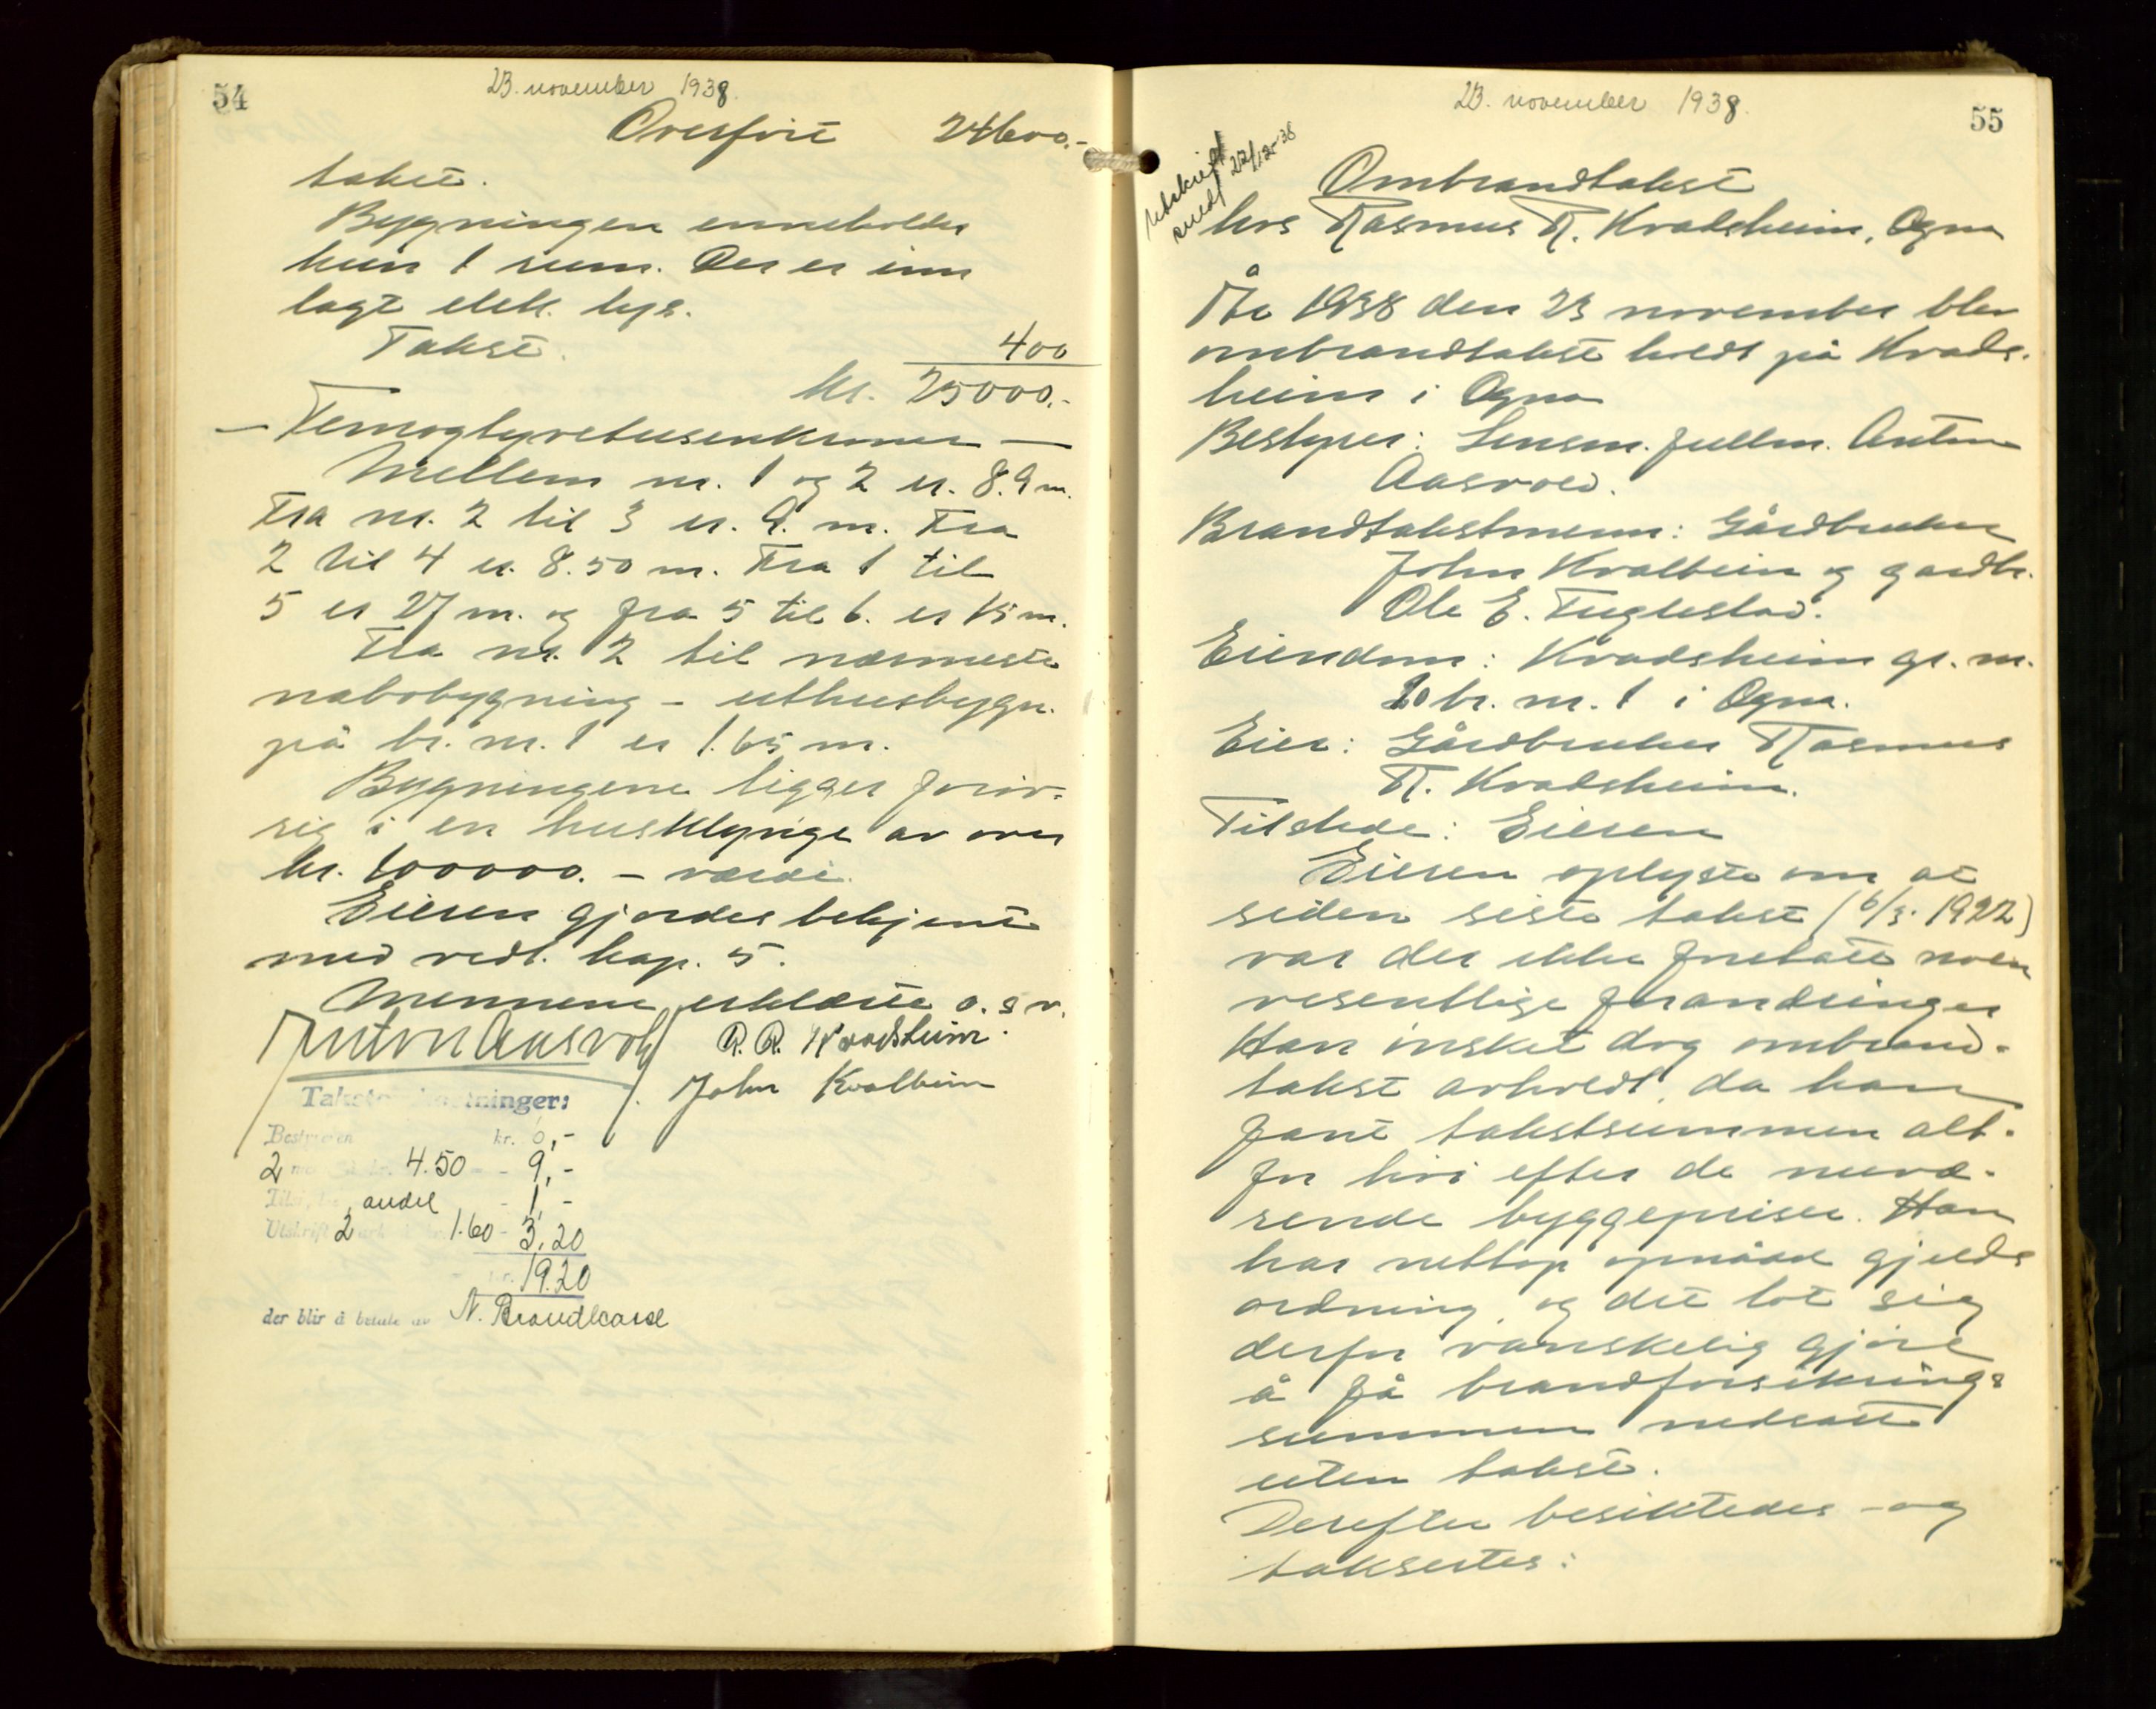 54
23. november 1938.
Overført 24600.-
takst.
Bygningen inneholder
kun 1 rum. Der er inn
lagt elek. lys.
Takst. 400
kr. 25000.-
— Femogtyvetusenkroner —
Mellem nr. 1 og 2 er. 8.9 m.
Fra nr. 2 til 3 er. 9. m. Fra
2 til 4 er. 8.50 m. Fra 1 til
5 er 27 m. og fra 5 til 6. er 15 m.
Fra nr. 2 til nærmeste
nabobygning - uthusbygn.
på br. nr. 1 er 1.65 m.
Bygningene ligger forøv-
rig i en husklynge av over
kr. 100000. - værdi.
Eieren gjordes bekjent
med vedt. kap. 5.
Mennene erklærte o. s v.
Anton Aasvold R. R. Kvadsheim.
John Kvalbein
Takstomkostninger:
Bestyreren kr. 6,-
2 4.50 - 9,-
andel - 1,-
Utskrift 2 ark 1.60 - 3,20
19.20
der blir å betale av N. Brandkasse
23. november 1938.
55
Utskrift
sendt 22/12-38
Ombrandtakst
hos Rasmus R. Kvadsheim, Ogna
År 1938 den 23 november blev
ombrandtakst holdt på Kvads-
heim i Ogna
Bestyrer: Lensm. fullm. Anton
Aasvold.
Brandtakstmenn: Gårdbruker
John Kvalbein og gardbr.
Ole E. Fuglestad.
Eiendom: Kvadsheim gr. nr.
10 br. nr. 1 i Ogna.
Eier: Gårdbruker Rasmus
R. Kvadsheim.
Tilstede: Eieren
Eieren oplyste om at
siden siste takst (6/3. 1922)
var der ikke foretatt noen
vesentlige forandringer
Han ønsket dog ombrand-
takst avholdt, da han
fant takstsummen alt-
for høi efter de nuvæ-
rende byggepriser. Han
har nettop opnådd gjelds
ordning, og det lot sig
derfor vanskelig gjøre
å få brandforsikrings
summen nedsatt
uten takst.
Derefter besiktedes - og
taksertes: